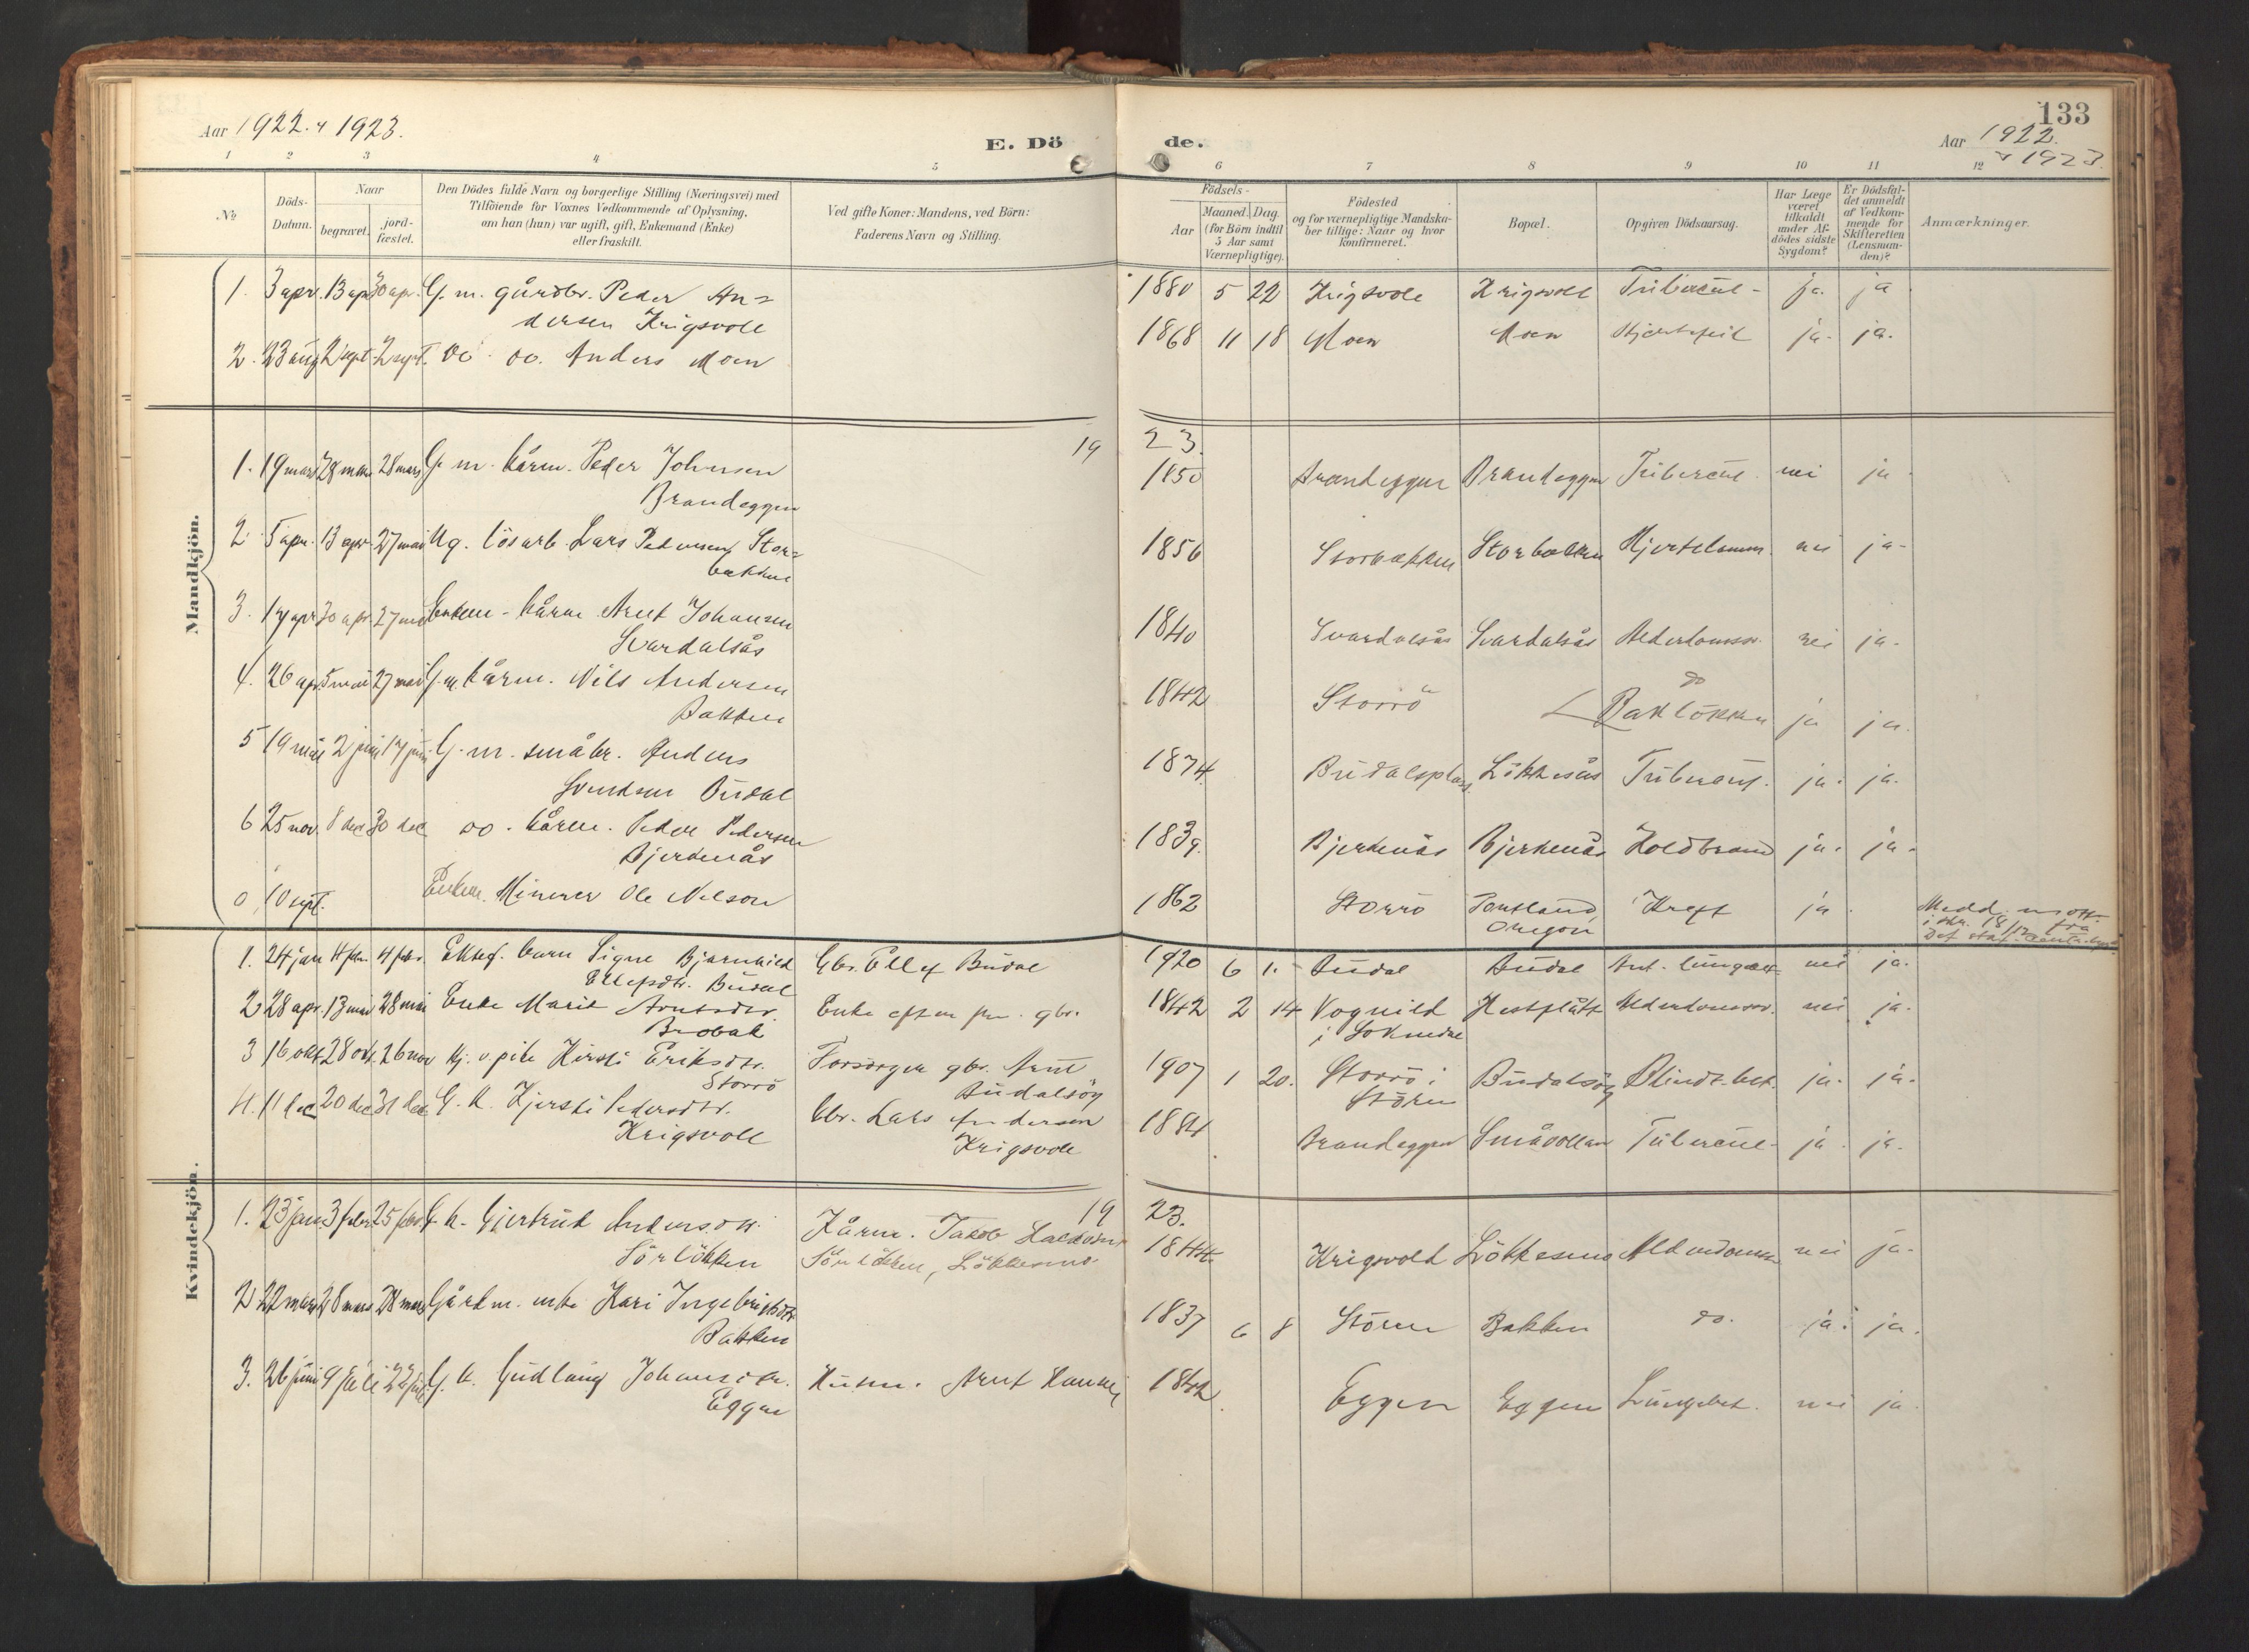 133
Aar 1922. & 1923.
E. Dö
de.
Aar 1922.
& 1923.
1 2 3 4 5 6 7 8 9 10 11 12
№
Döds-
Datum.
Naar
begravet.
jord-
fæstet.
Den Dödes fulde Navn og borgerlige Stilling (Næringsvei) med
Tilföiende for Voxnes Vedkommende af Oplysning,
om han (hun) var ugift, gift, Enkemand (Enke)
eller fraskilt.
Ved gifte Koner: Mandens, ved Börn:
Faderens Navn og Stilling.
Födsels-
Aar
Maaned. Dag.
(for Börn indtil
5 Aar samt
Værnepligtige).
Födested
og for værnepligtige Mandska-
ber tillige: Naar og hvor
konfirmeret.
Bopæl.
Opgiven Dödsaarsag.
Har Læge
været
tilkaldt
under Af-
dödes sidste
Sygdom?
Er Dödsfal-
det anmeldt
af Vedkom-
mende for
Skifteretten
(Lensman-
den)?
Anmærkninger.
Mandkjön.
1. 3 apr. 13 apr 30 apr. G. m. gårdbr. Peder An= 1880 5 22 Krigsvoll Krigsvoll Tubercul- ja. ja
dersen Krigsvoll
2. 23 aug 2 sept. 2 sept. do. do. Anders Moen 1868 11 18 Moen Moen Hjertefeil ja. ja.
19 23.
1. 19 mars 28 mars 28 mars G. m. kårm. Peder Johnsen 1850 Brandeggen Brandeggen Tubercul. nei ja.
Brandeggen
2 5 apr. 13 apr. 27 mai Ug. lösarb. Lars Pedersen Stor= 1856 Storbækken Storbækken Hjertelamm. nei ja-
bækken
3. 17 apr 30 apr. 27 mai Enkem- kårm. Arnt Johansen 1840 Svardalsås Svardalsås Alderdomssv. nei ja-
Svardalsås
4. 26 apr. 5 mai 27 mai G. m. kårm. Nils Andersen 1842 Storrö Bakløkken do ja ja.
Bakken
5 19 mai 2 juni 17 juni G. m. småbr. Anders 1874. Budalsplass. Løkkesås Tubercul. ja. ja.
Svendsen Budal
6 25 nov. 8 dec. 30 dec do. kårm. Peder Pedersen 1839. Bjerkenås Bjerkenås Koldbrand ja. ja.
Bjerkenås
0 10 sept. Enkem. Minerer Ole Nelson 1862 Storrö Portland, Kreft ja.
Oregon
Kvindekjön.
1. 24 jan 4 febr. 4 febr. Ektef. barn Signe Bjarnhild Gbr. Ellef Budal 1920 6 1. Budal Budal nei ja.
Ellefsdtr. Budal
2 28 apr. 13 mai 28 mai Enke Marit Arntsdtr. Enke efter gbr. 1842 2 14 Vognild Hestflått Alderdomssv. nei ja.
i Soknedal
3 16 okt. 28 okt. 26 nov Kirsti Eriksdtr. Forsörger gbr. Arnt 1907 1 20. Storrö i Budalsöy ja. ja.
Storrö Budalsöy Stören
4. 11 dec 20 dec 31 dec. G. k. Kjersti Pedersdtr. Gbr. Lars Andersen 1884 Brandeggen Småvollan Tubercul- ja. ja.
Krigsvoll Krigsvoll
19 23.
1. 23 jan. 3 febr. 25 febr. G. k. Gjertrud Andersdtr. Kårm. Jakob 1844. Krigsvold Løkkesmo Alderdomssv. nei ja-
Sörløkken Sörløkken, Løkkesmo.
2 22 mars 28 mars 28 mars Gårdm. enke Kari Ingebrigtsdtr. 1837 6 8 Stören Bakken do. ja. ja.
Bakken
3. 26 juni 9 juli 22 juli G. k. Gudlaug Johansdtr. Husm. Arnt 1842. Eggen Eggen Lungebet. nei ja.
Eggen